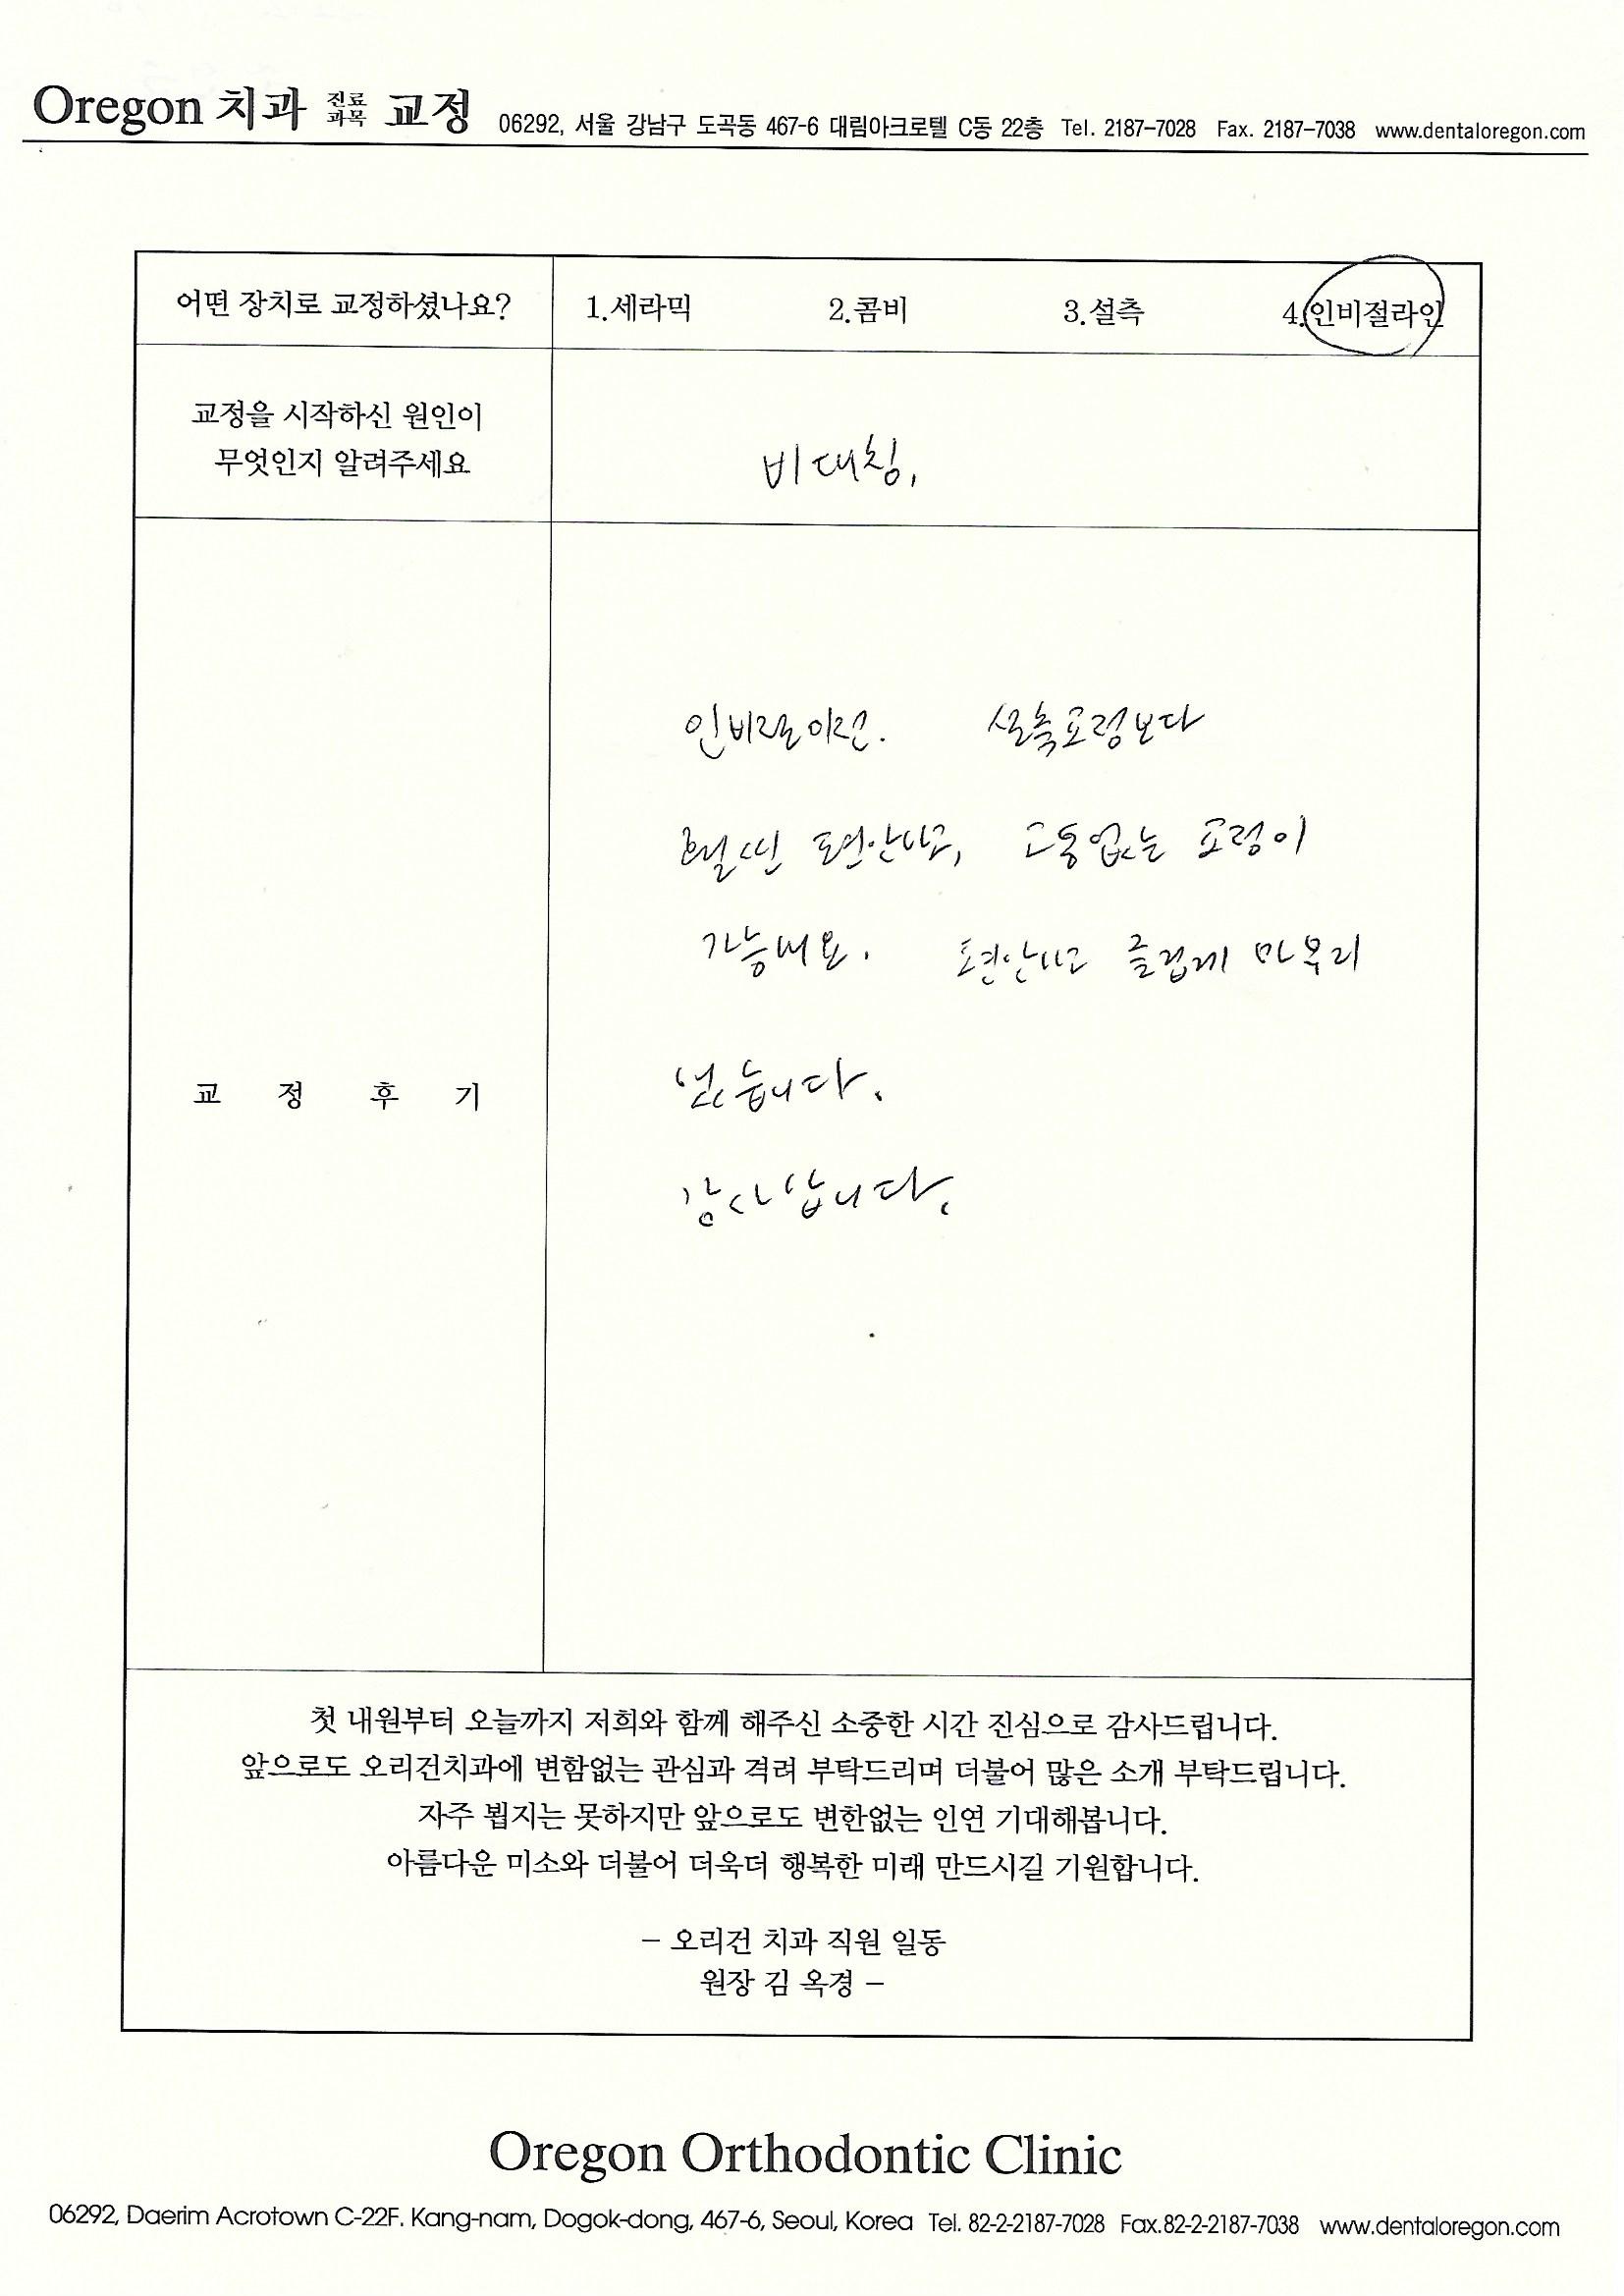 Oregon 치과 진료과목 교정 06292, 서울 강남구 도곡동 467-6 대림아크로텔 C동 22층 Tel. 2187-7028 Fax. 2187-7038 www.dentaloregon.com
어떤 장치로 교정하셨나요? 1.세라믹 2.콤비 3.설측 4.인비절라인
교정을 시작하신 원인이
무엇인지 알려주세요
비대칭,
설측교정보다
훨씬 편안하고, 고통없는 교정이
가능해요. 편안하고 즐겁게 마무리
했습니다.
감사합니다.
교 정 후 기
첫 내원부터 오늘까지 저희와 함께 해주신 소중한 시간 진심으로 감사드립니다.
앞으로도 오리건치과에 변함없는 관심과 격려 부탁드리며 더불어 많은 소개 부탁드립니다.
자주 뵙지는 못하지만 앞으로도 변한없는 인연 기대해봅니다.
아름다운 미소와 더불어 더욱더 행복한 미래 만드시길 기원합니다.
– 오리건 치과 직원 일동
원장 김 옥경 –
Oregon Orthodontic Clinic
06292, Daerim Acrotown C-22F. Kang-nam, Dogok-dong, 467-6, Seoul, Korea Tel. 82-2-2187-7028 Fax.82-2-2187-7038 www.dentaloregon.com